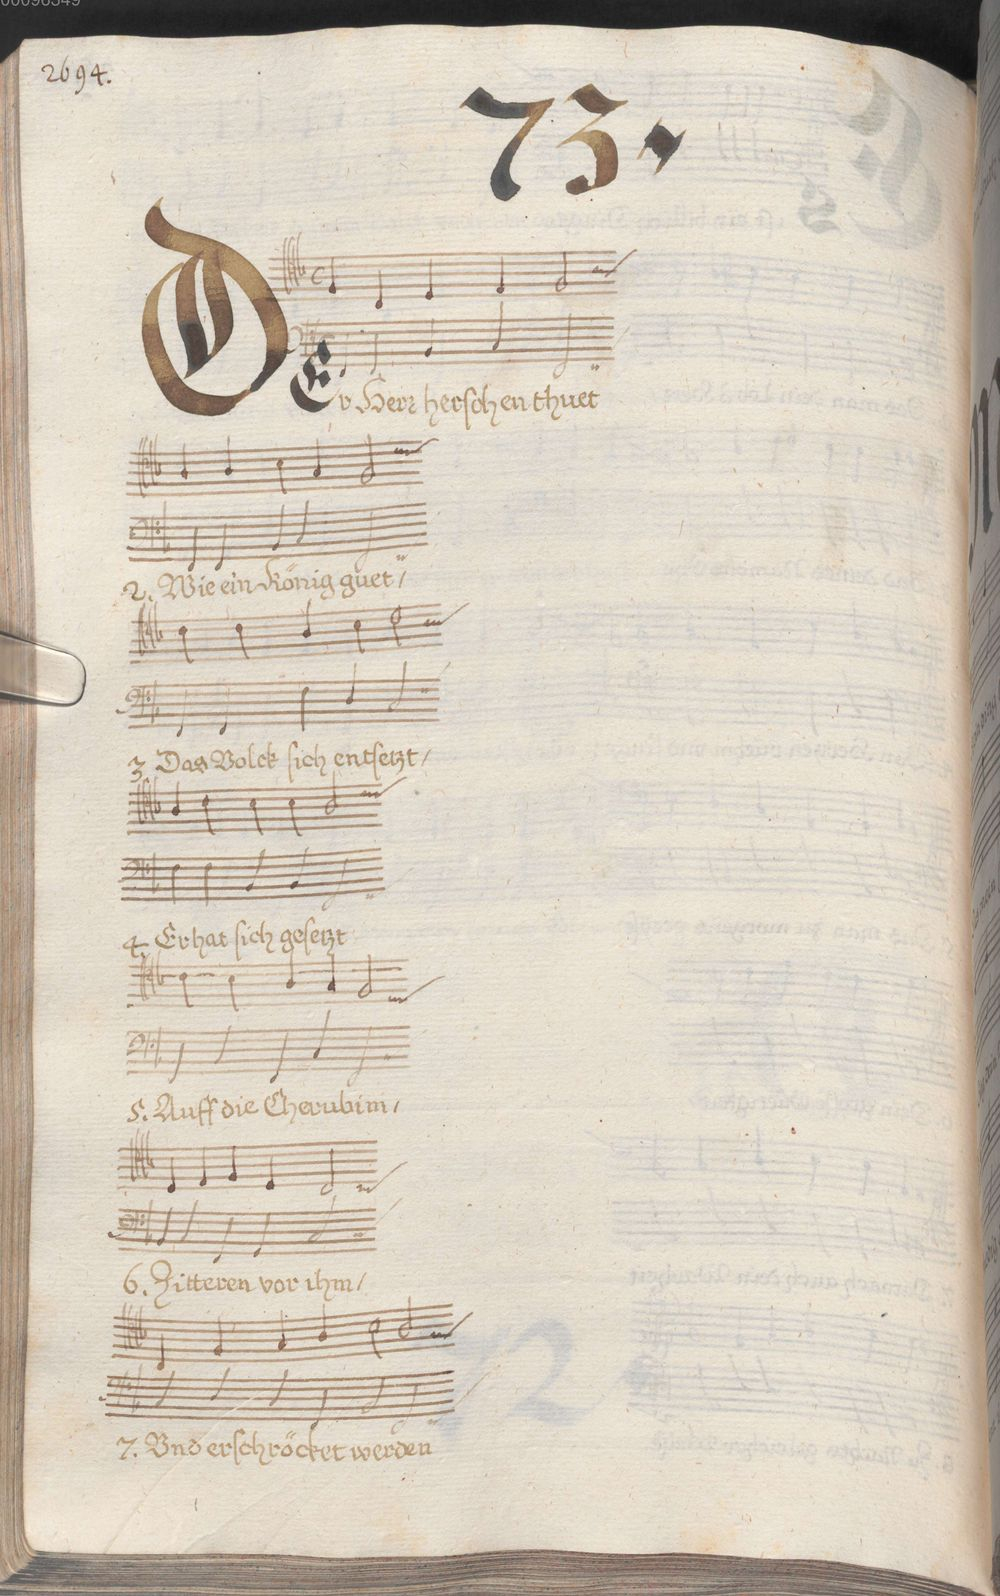 2694.
73.
DEr Herr herschen thuet
2. Wie ein König guet /
3 Das Volck sich entsetzt /
4. Er hat sich gesetzt
5. Auff die Cherubim /
6. Zitteren vor ihm /
7. Vnd erschröcket werden